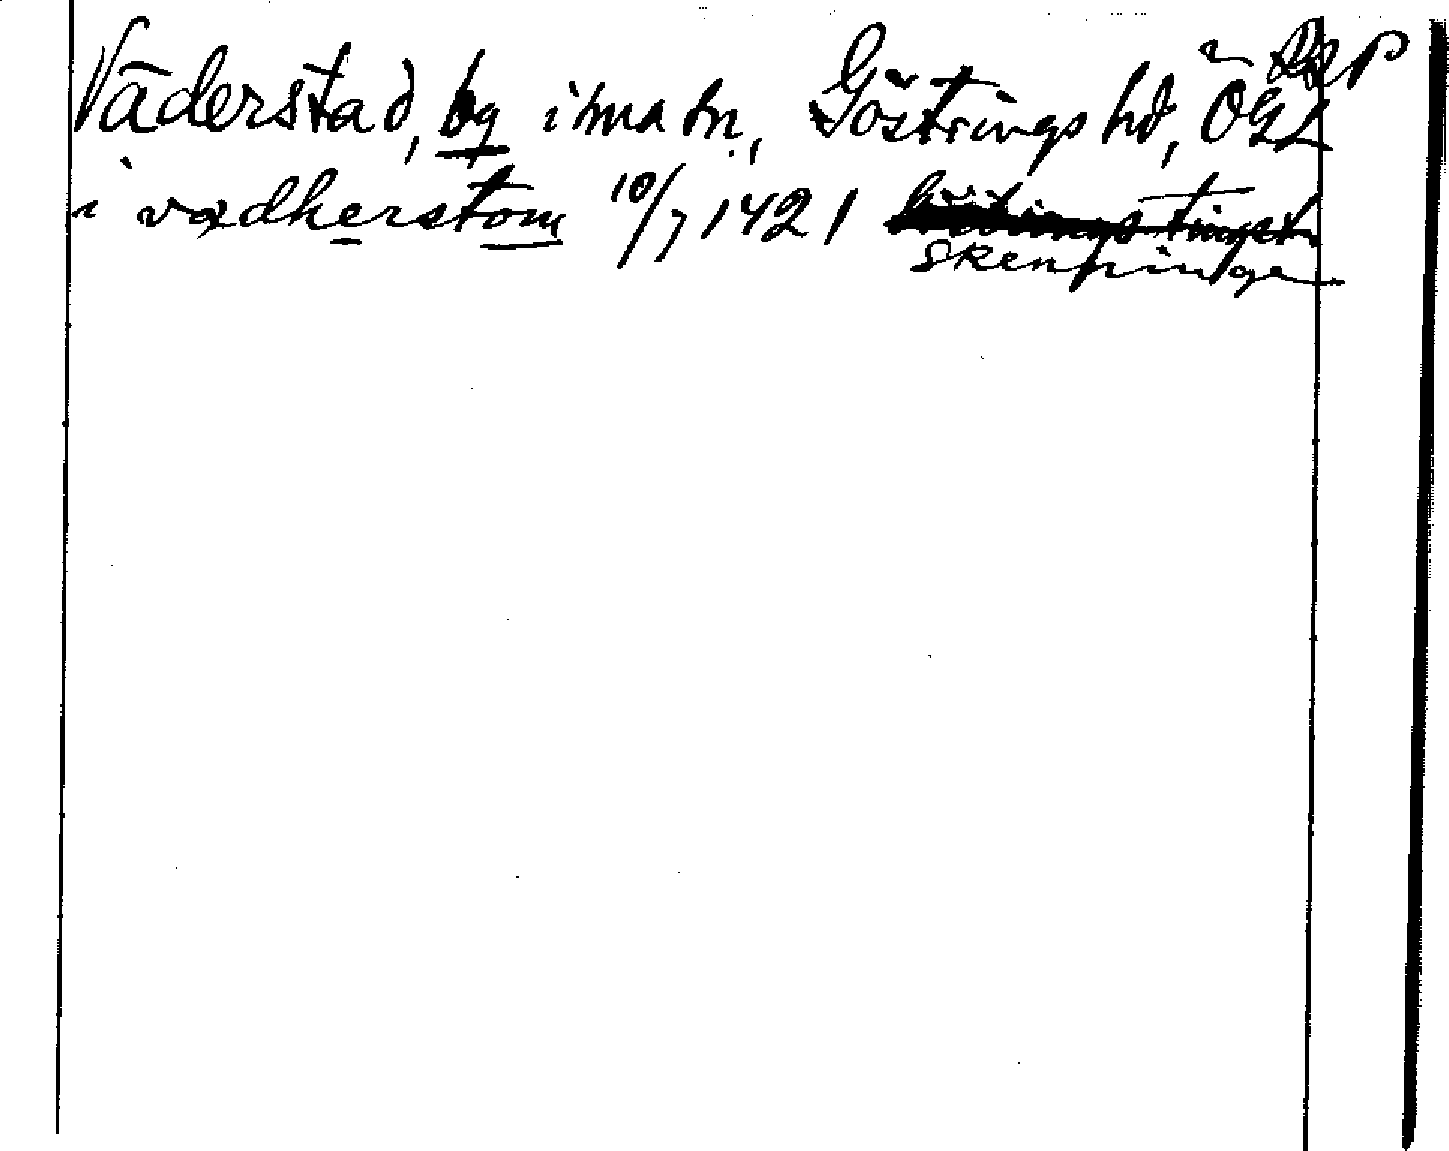 Väderstad, by i sma sn, Göstrings hd, ÖGL
i vædherstom 10/7 1421 tingst
skenninge